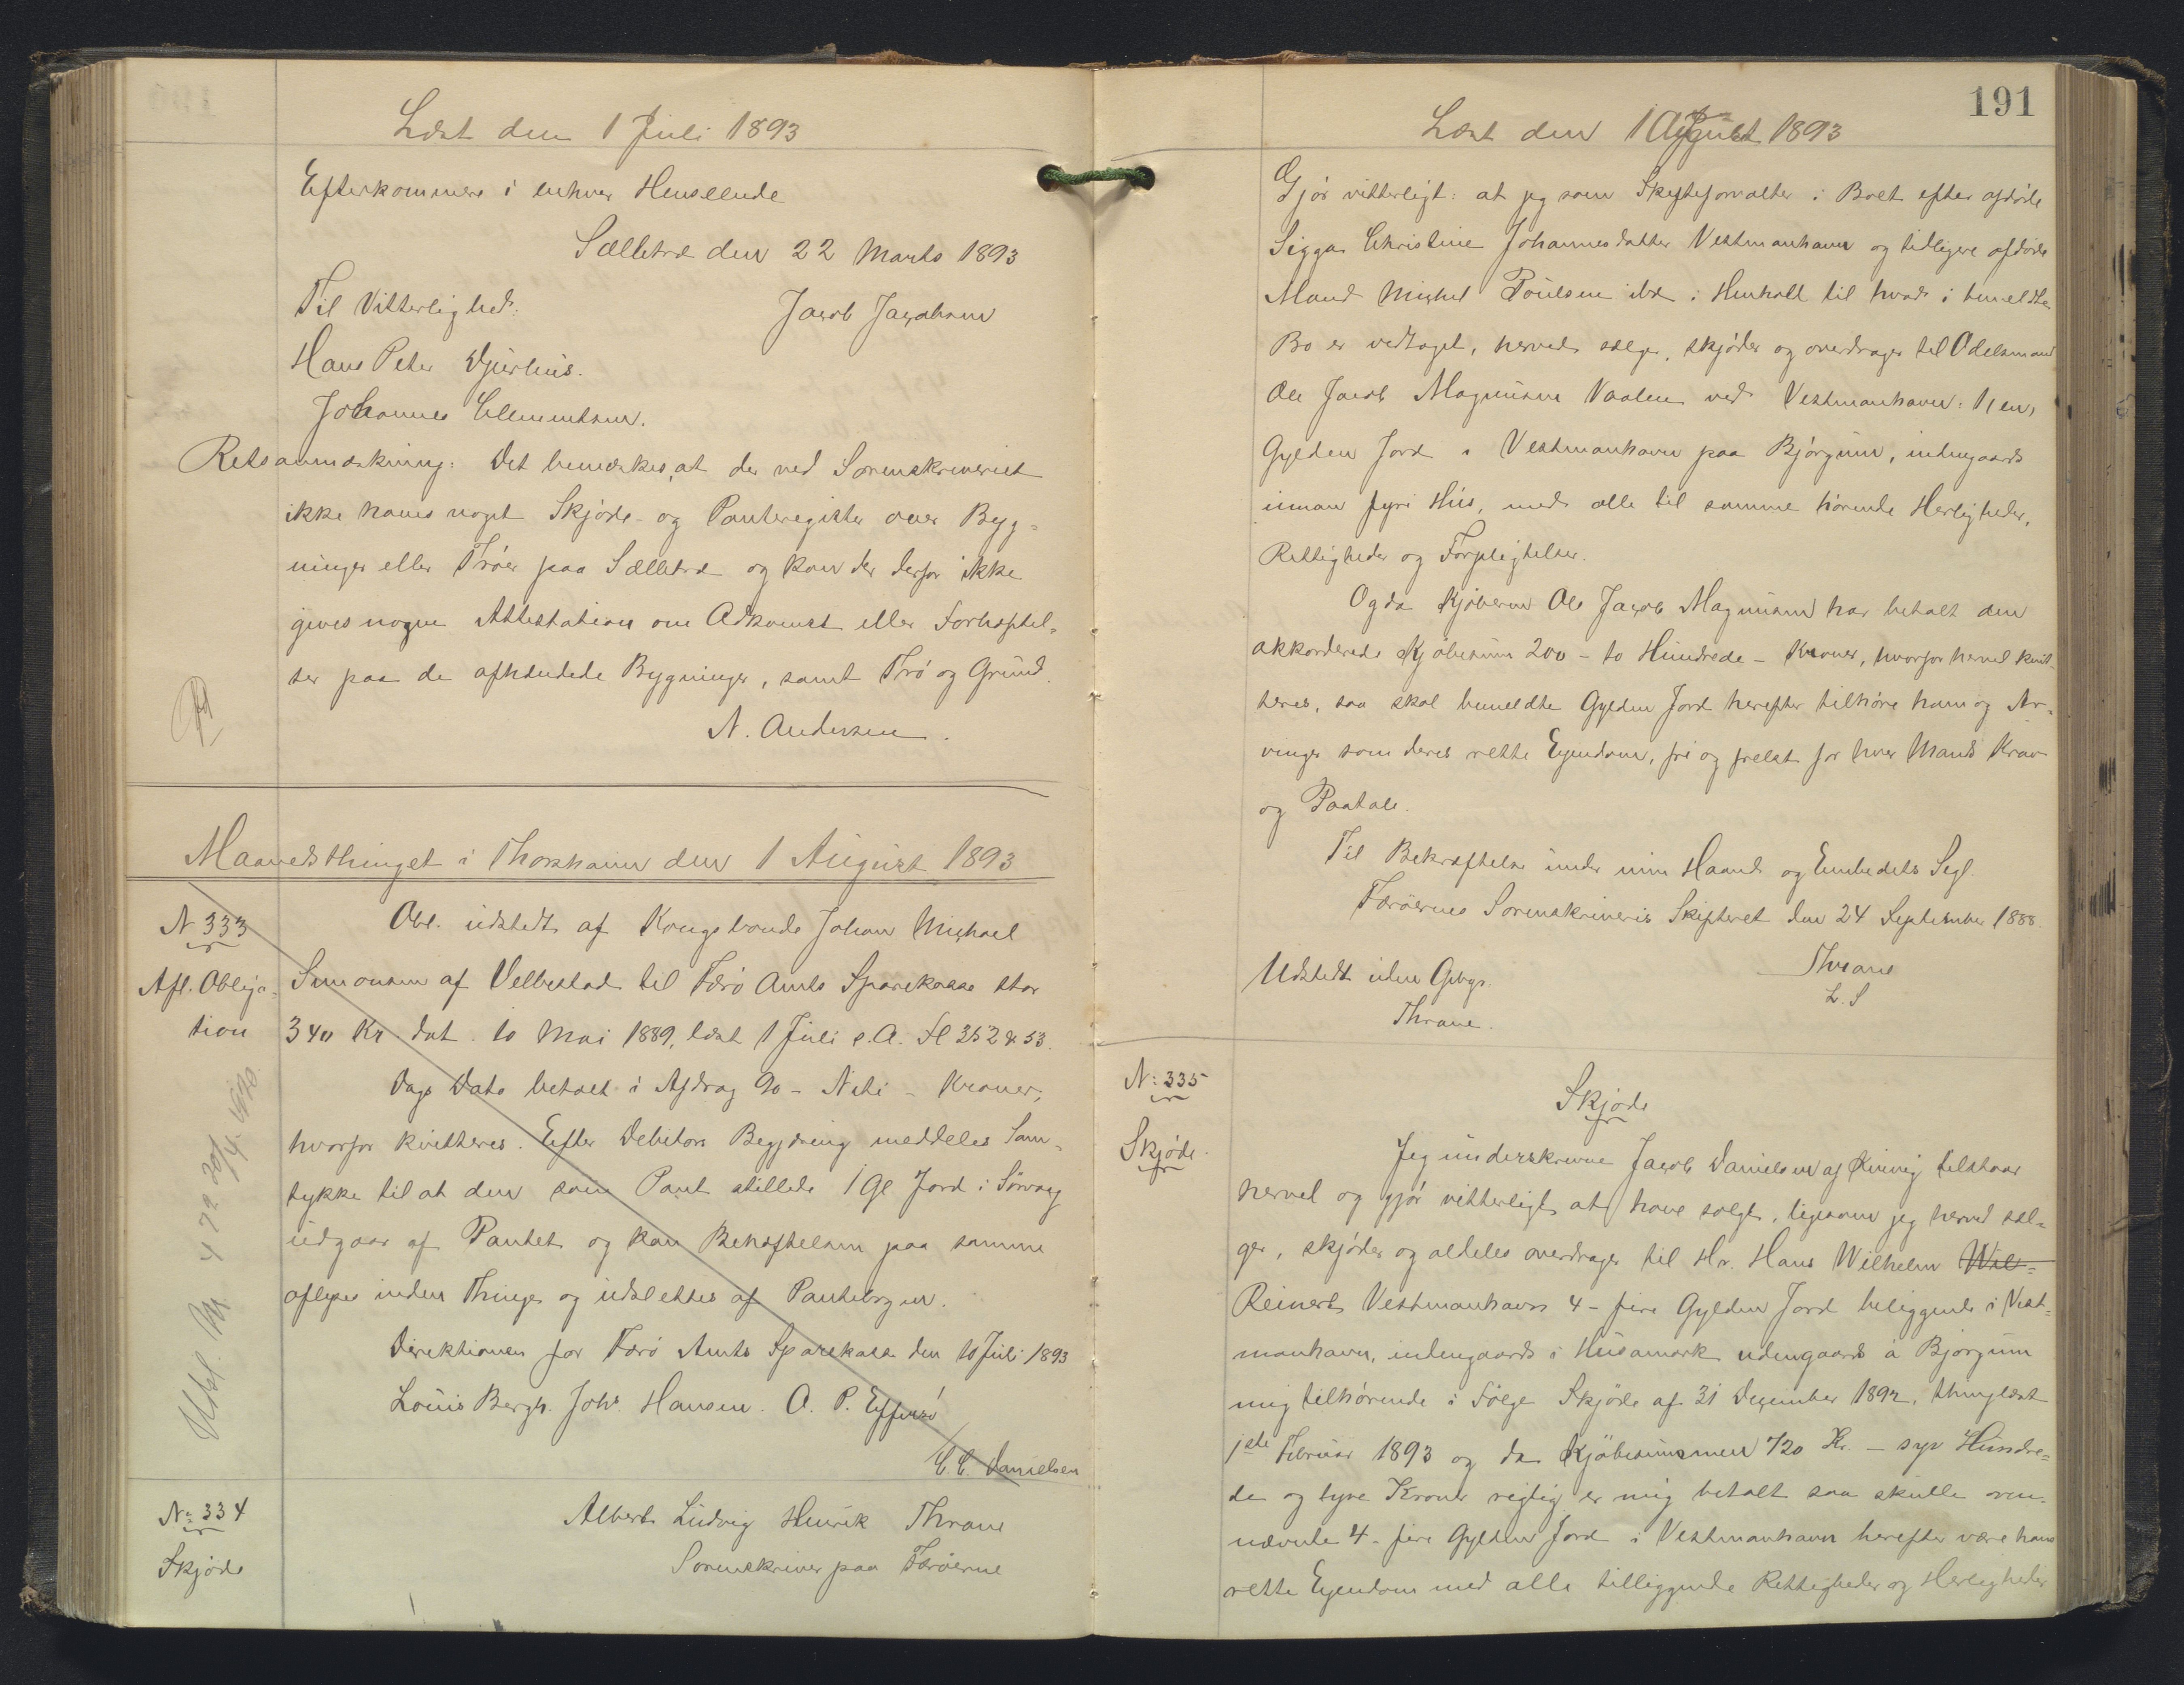 Læst den 1 Juli 1893
Efterkommere i enhver Henseende
Sælletræ den 22 Marts 1893
Til Vitterlighed: Jacob Jacobsen
Hans Peter Djurhuus.
Johannes Clementsen.
Retsanmærkning: Det bemærkes, at der ved Sorenskriveriet
ikke haves noget Skjøde- og Panteregister over Byg-
ninger eller Trøer paa Sælletræ og kan der derfor ikke
gives nogen Attestation om Adkomst eller Forhæftel-
ser paa de afhændede Bygninger, samt Trø og Grund.
N. Andersen.
Maanedsthinget i Thorshavn den 1 August 1893
N 333
Afl. Obliga-
tion
Obl. udstedt af Kongsbonde Johan Michael
Simonsen af Velbestad til Færø Amts Sparekasse stor
340 Kr dat. 10 Mai 1889, læst 1 Juli s. A. Fl 352 & 53.
Dags Dato betalt i Afdrag 90 - Niti - Kroner,
hvorfor kvitteres. Efter Debitors Begjæring meddeles Sam-
tykke til at den som Pant stillede 1 Gl Jord i Sørvaag
udgaar af Pantet og kan Behæftelsen paa samme
aflyses inden Thinge og udslettes af Pantebogen.
Direktionen for Færø Amts Sparekasse den 10 Juli 1893
Louis Bergh. Johs. Hansen. O. P. Effersö
C. C. Danielsen
Nr 472 20/4
N: 334
Skjøde
Albert Ludvig Henrik Thrane
Sorenskriver paa Færøerne
191
Læst den 1 August 1893
Gjør vitterligt: at jeg som Skifteforvalter i Boet efter afdøde
Sigga Christine Johannesdatter Vestmanhavn og tidligere afdøde
Mand Michel Poulsen ibd. i Henhold til hvad i bemeldte
Bo er vedtaget, herved sælger, skjøder og overdrager til Odelsmand
Ole Jacob Magnusen Vaalen ved Vestmanhavn: 1, en,
Gylden Jord i Vestmanhavn paa Bjørgum, indengaards
innan fyri Hús, med alle til samme hørende Herligheder,
Rettigheder og Forpligtelser.
Og da Kjøberen Ole Jacob Magnusen har betalt den
akkorderede Kjøbesum 200 - to Hundrede - Kroner, hvorfor herved kvit-
teres, saa skal bemeldte Gylden Jord herefter tilhøre ham og Ar-
vinger som deres rette Ejendom, fri og frelst for hver Mands Krav
og Paatale.
Til Bekræftelse under min Haand og Embedets Segl.
Færøernes Sorenskriveris Skifteret den 24 September 1888.
Thrane
L. S
Udstedt uden Gebyr.
Thrane.
N: 335
Skjøde.
Skjøde
Jeg underskrevne Jacob Danielsen af Kvivig tilstaar
herved og gjør vitterligt at have solgt, ligesom jeg herved sæl-
ger, skjøder og aldeles overdrager til Hr. Hans Wilhelm Wil-
Reinert Vestmanhavn 4 - fire Gylden Jord beliggende i Vest-
manhavn, indengaards i Húsamork udengaards á Bjørgum
mig tilhørende i Følge Skjøde af 31 December 1892, thinglæst
1ste Februar 1893 og da Kjøbesummen 720 Kr. - syv Hundre-
de og tyve Kroner rigtig er mig betalt saa skulle oven-
nævnte 4 - fire Gylden Jord i Vestmanhavn herefter være hans
rette Ejendom med alle tilliggende Rettigheder og Herligheder